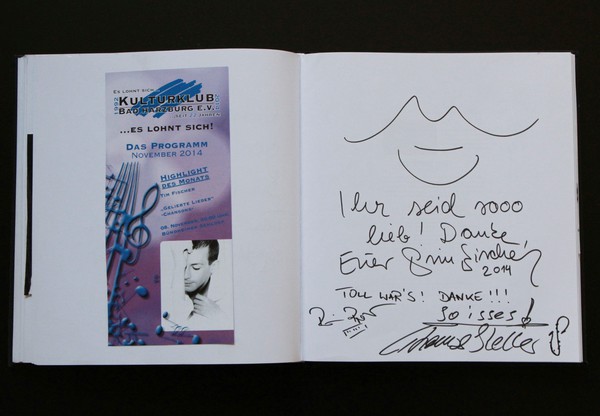 ES LOHNT SICH
KULTURKLUB
BAD HARZBURG E.V.
...ES LOHNT SICH!
DAS PROGRAMM
NOVEMBER 2014
HIGHLIGHT
DES MONATS
TIM FISCHER
„GELIEBTE LIEDER"
-CHANSONS-
08. NOVEMBER,
Ihr seid sooo
lieb! Danke,
Euer Tim Fischer
2014
TOLL WAR'S! DANKE!!!
So isses!